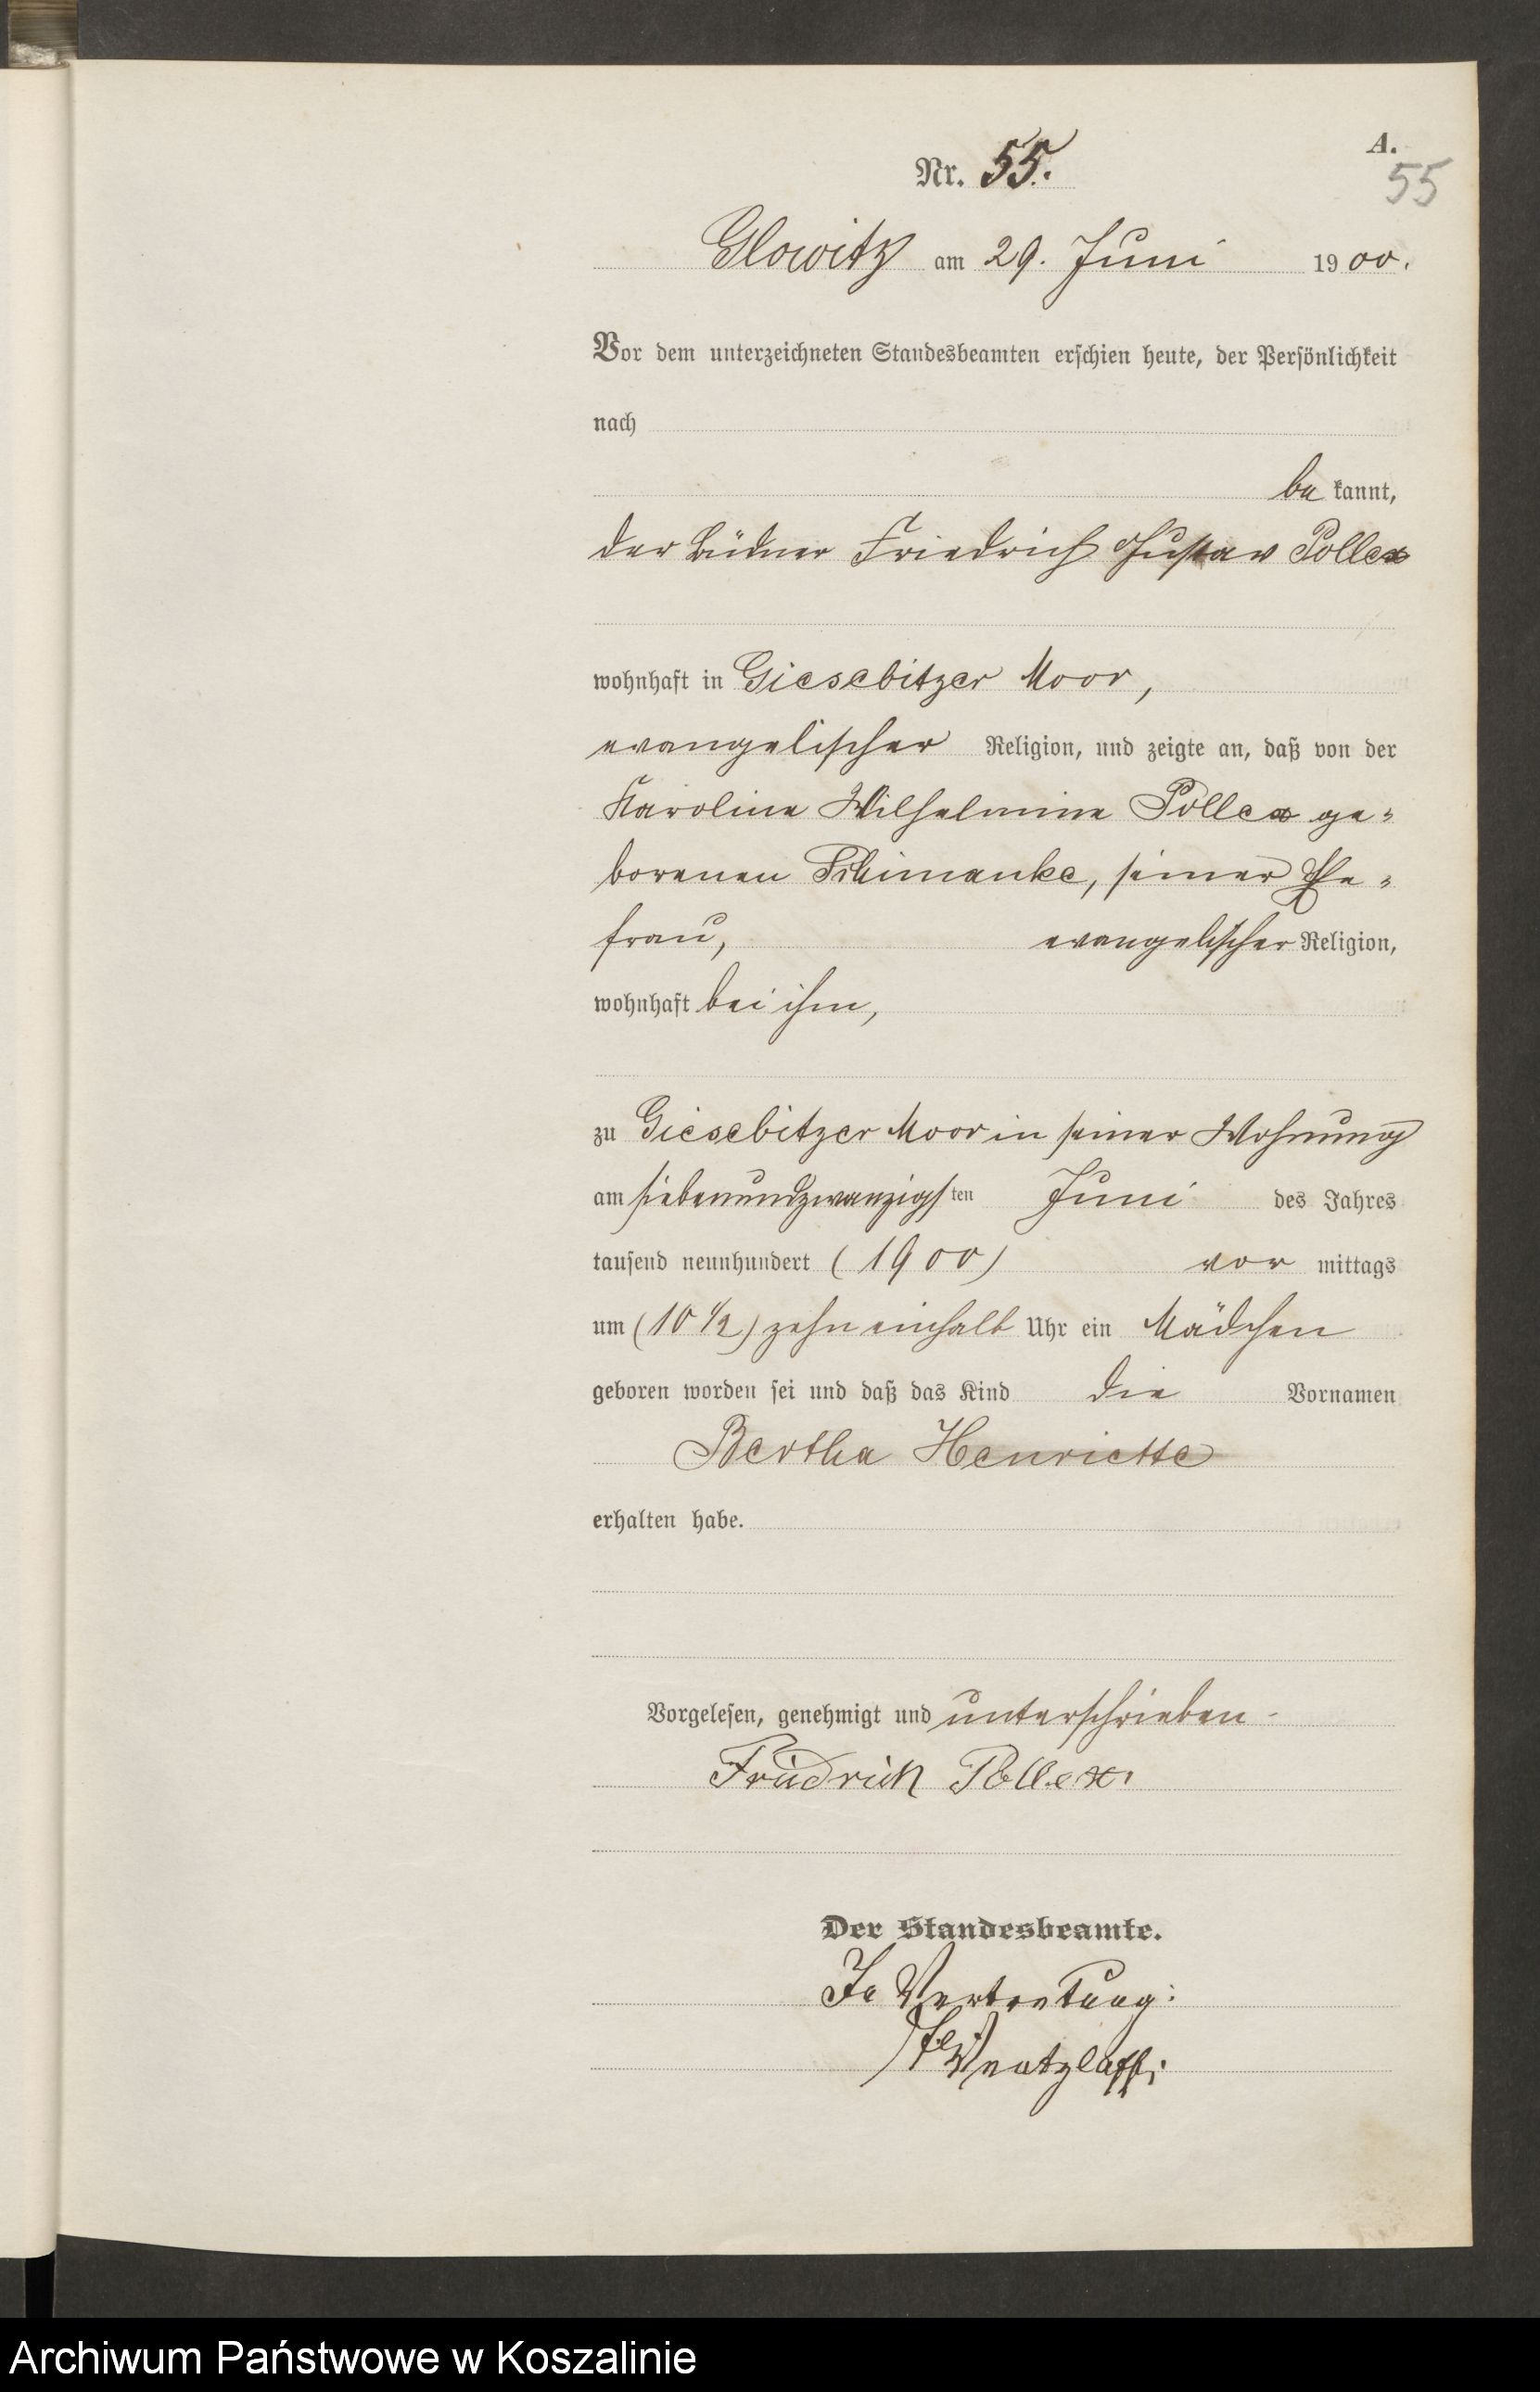 A.
Nr. 55.
55
Glowitz am 29. Juni 1900.
Vor dem unterzeichneten Standesbeamten erschien heute, der Persönlichkeit
nach
be kannt,
der Büdner Friedrich Gustav Pollex
wohnhaft in Giesebitzer Moor,
evangelischer Religion, und zeigte an, daß von der
Karoline Wilhelmine Pollex ge-
borenen Schimanke, seiner Ehe-
frau, evangelischer Religion,
wohnhaft bei ihm,
zu Giesebitzer Moor in seiner Wohnung
am siebenundzwanzigsten Juni des Jahres
tausend neunhundert (1900) vor mittags
um (10 1/2) zehn einhalb Uhr ein Mädchen
geboren worden sei und daß das Kind die Vornamen
Bertha Henriette
erhalten habe.
Vorgelesen, genehmigt und unterschrieben
Friedrich Pollex.
Der Standesbeamte.
In Vertretung:
Wentzlaff.
Archiwum Państwowe w Koszalinie